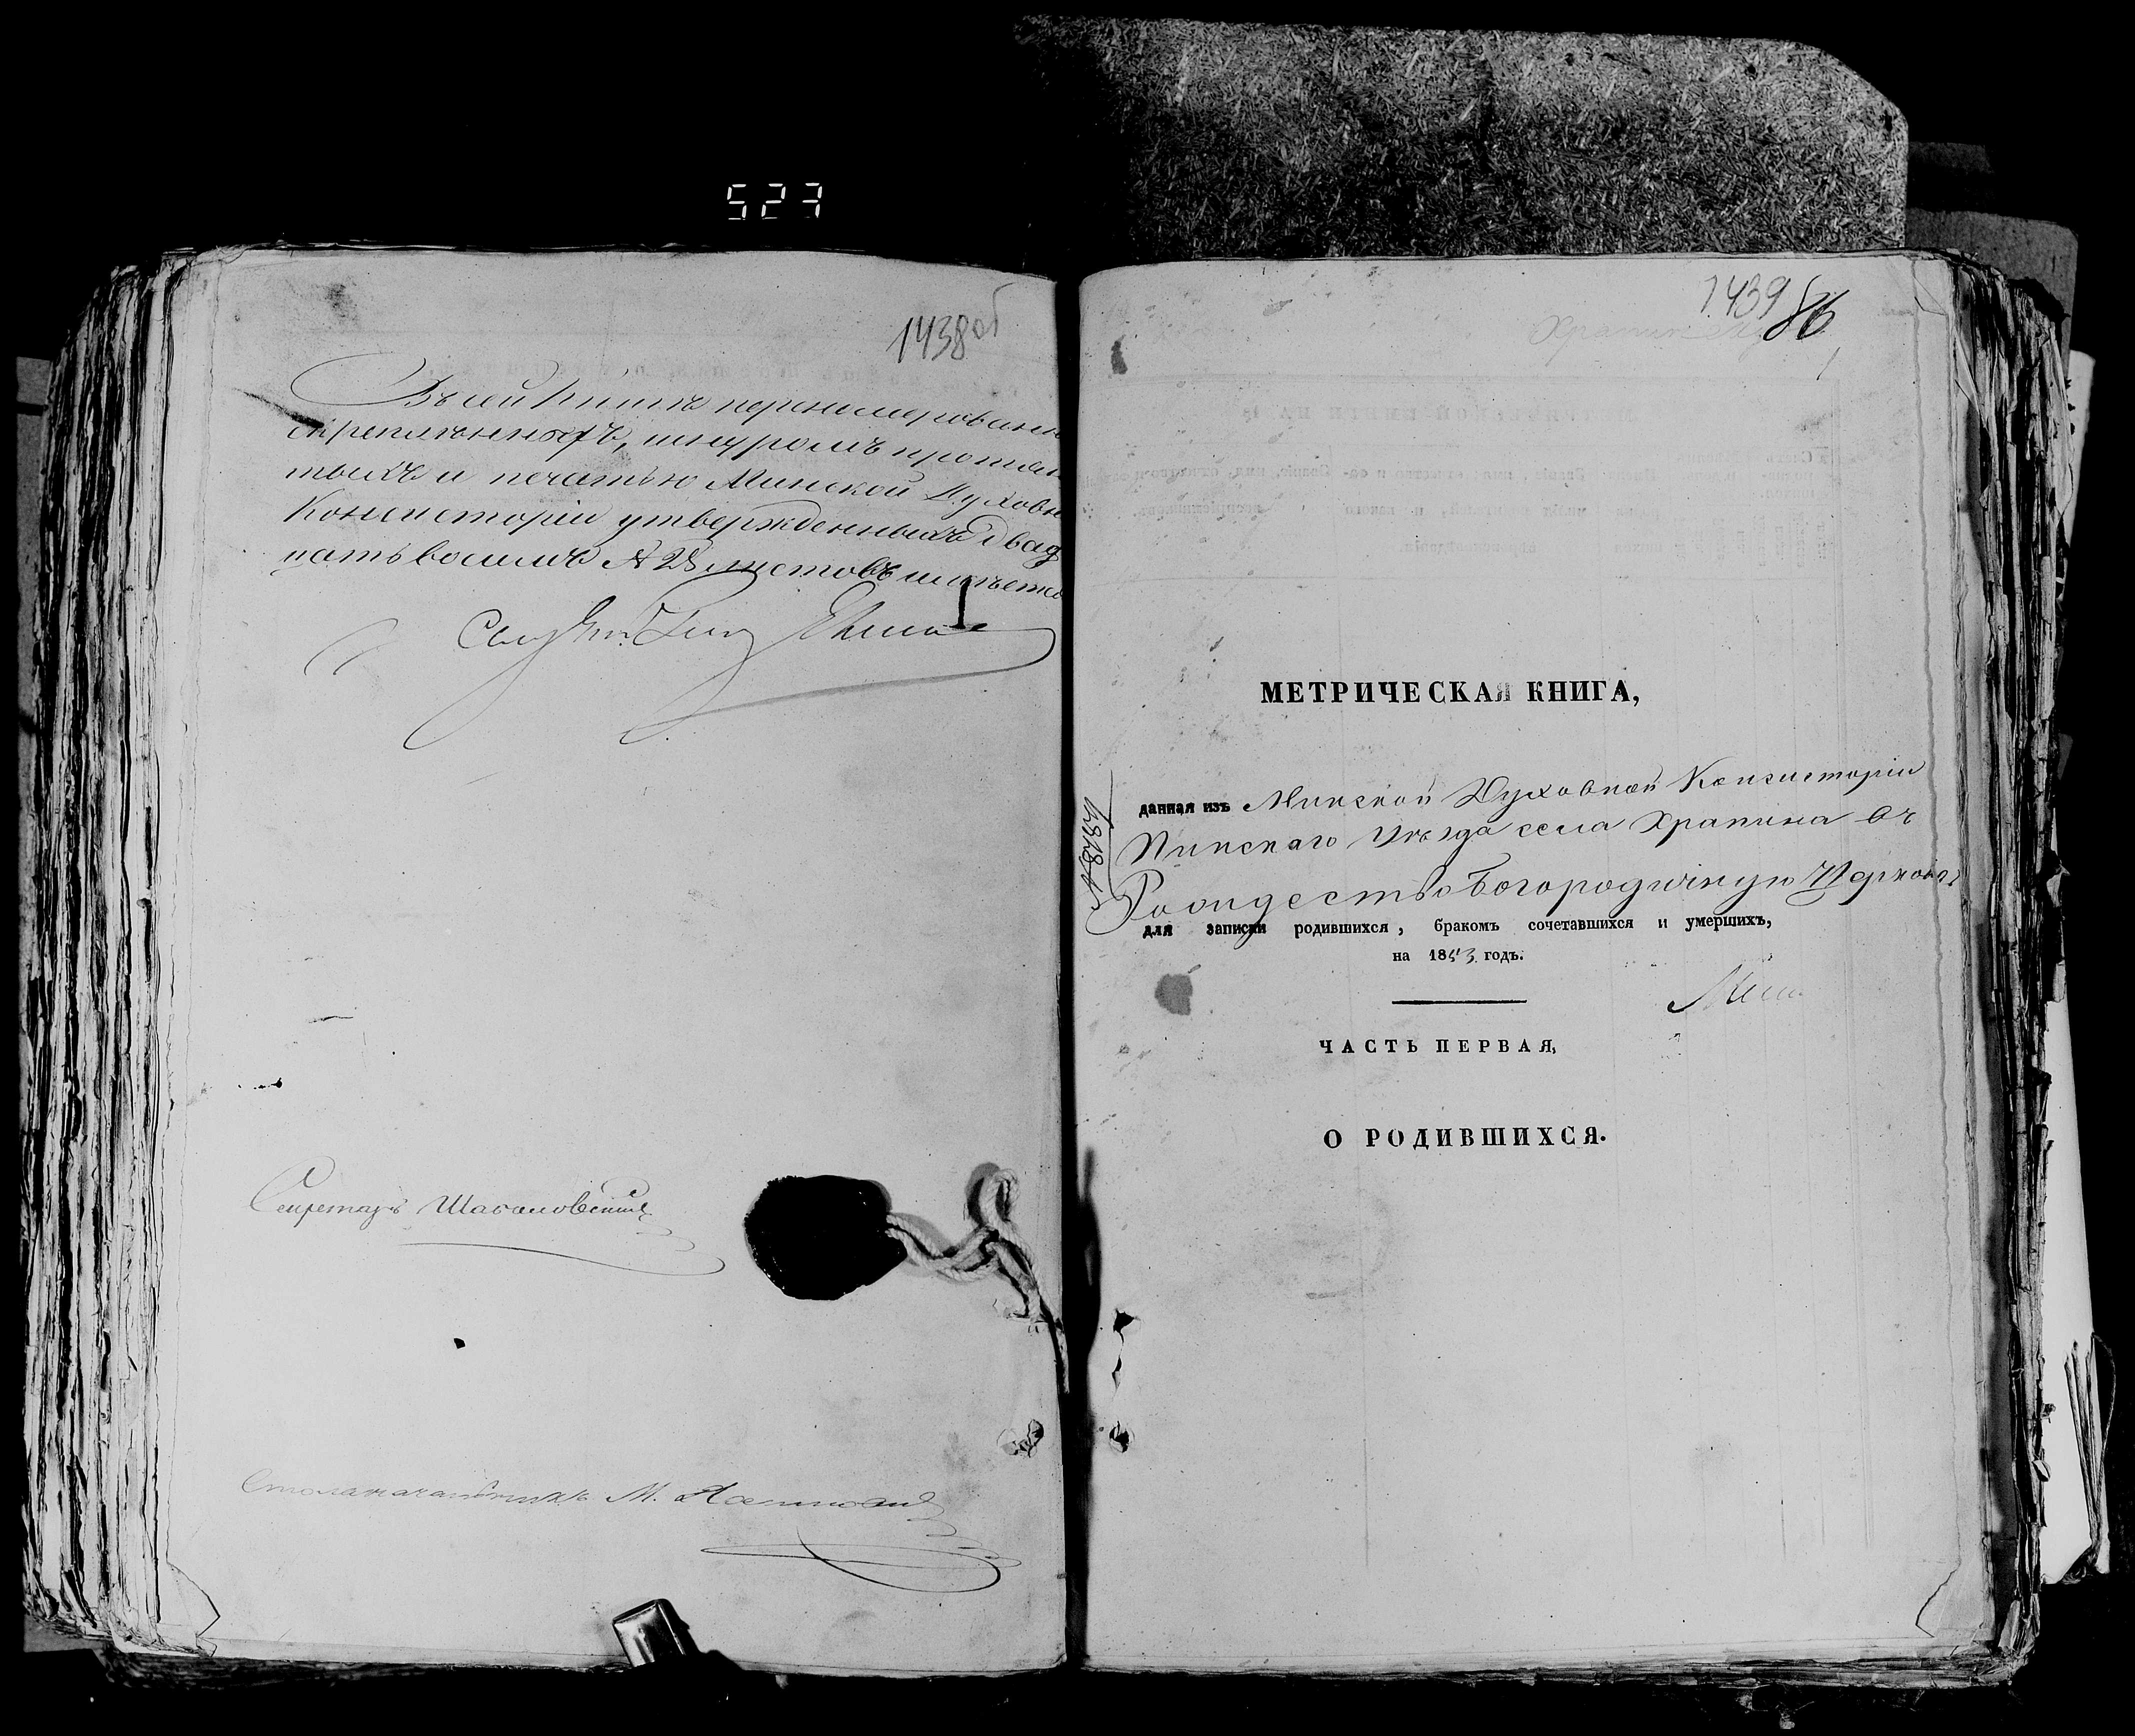 527
1438об
Въ сей Книгѣ перенумерованн
скрепленныхъ, шнуромъ протян
тыхъ и печатью Минской Духовн
Консисторіи утвержденныхъ двад
цать восемь № 28 листовъ имѣетс
Секретарь
Столоначальникъ М.
1439 86
МЕТРИЧЕСКАЯ КНИГА,
данная изъ Минской Духовной Консисторіи
Пинскаго Уѣзда села Храпина въ
Рождество Богородичную Церковь
для записки родившихся, бракомъ сочетавшихся и умершихъ,
на 1853 годъ.
ЧАСТЬ ПЕРВАЯ,
О РОДИВШИХСЯ.